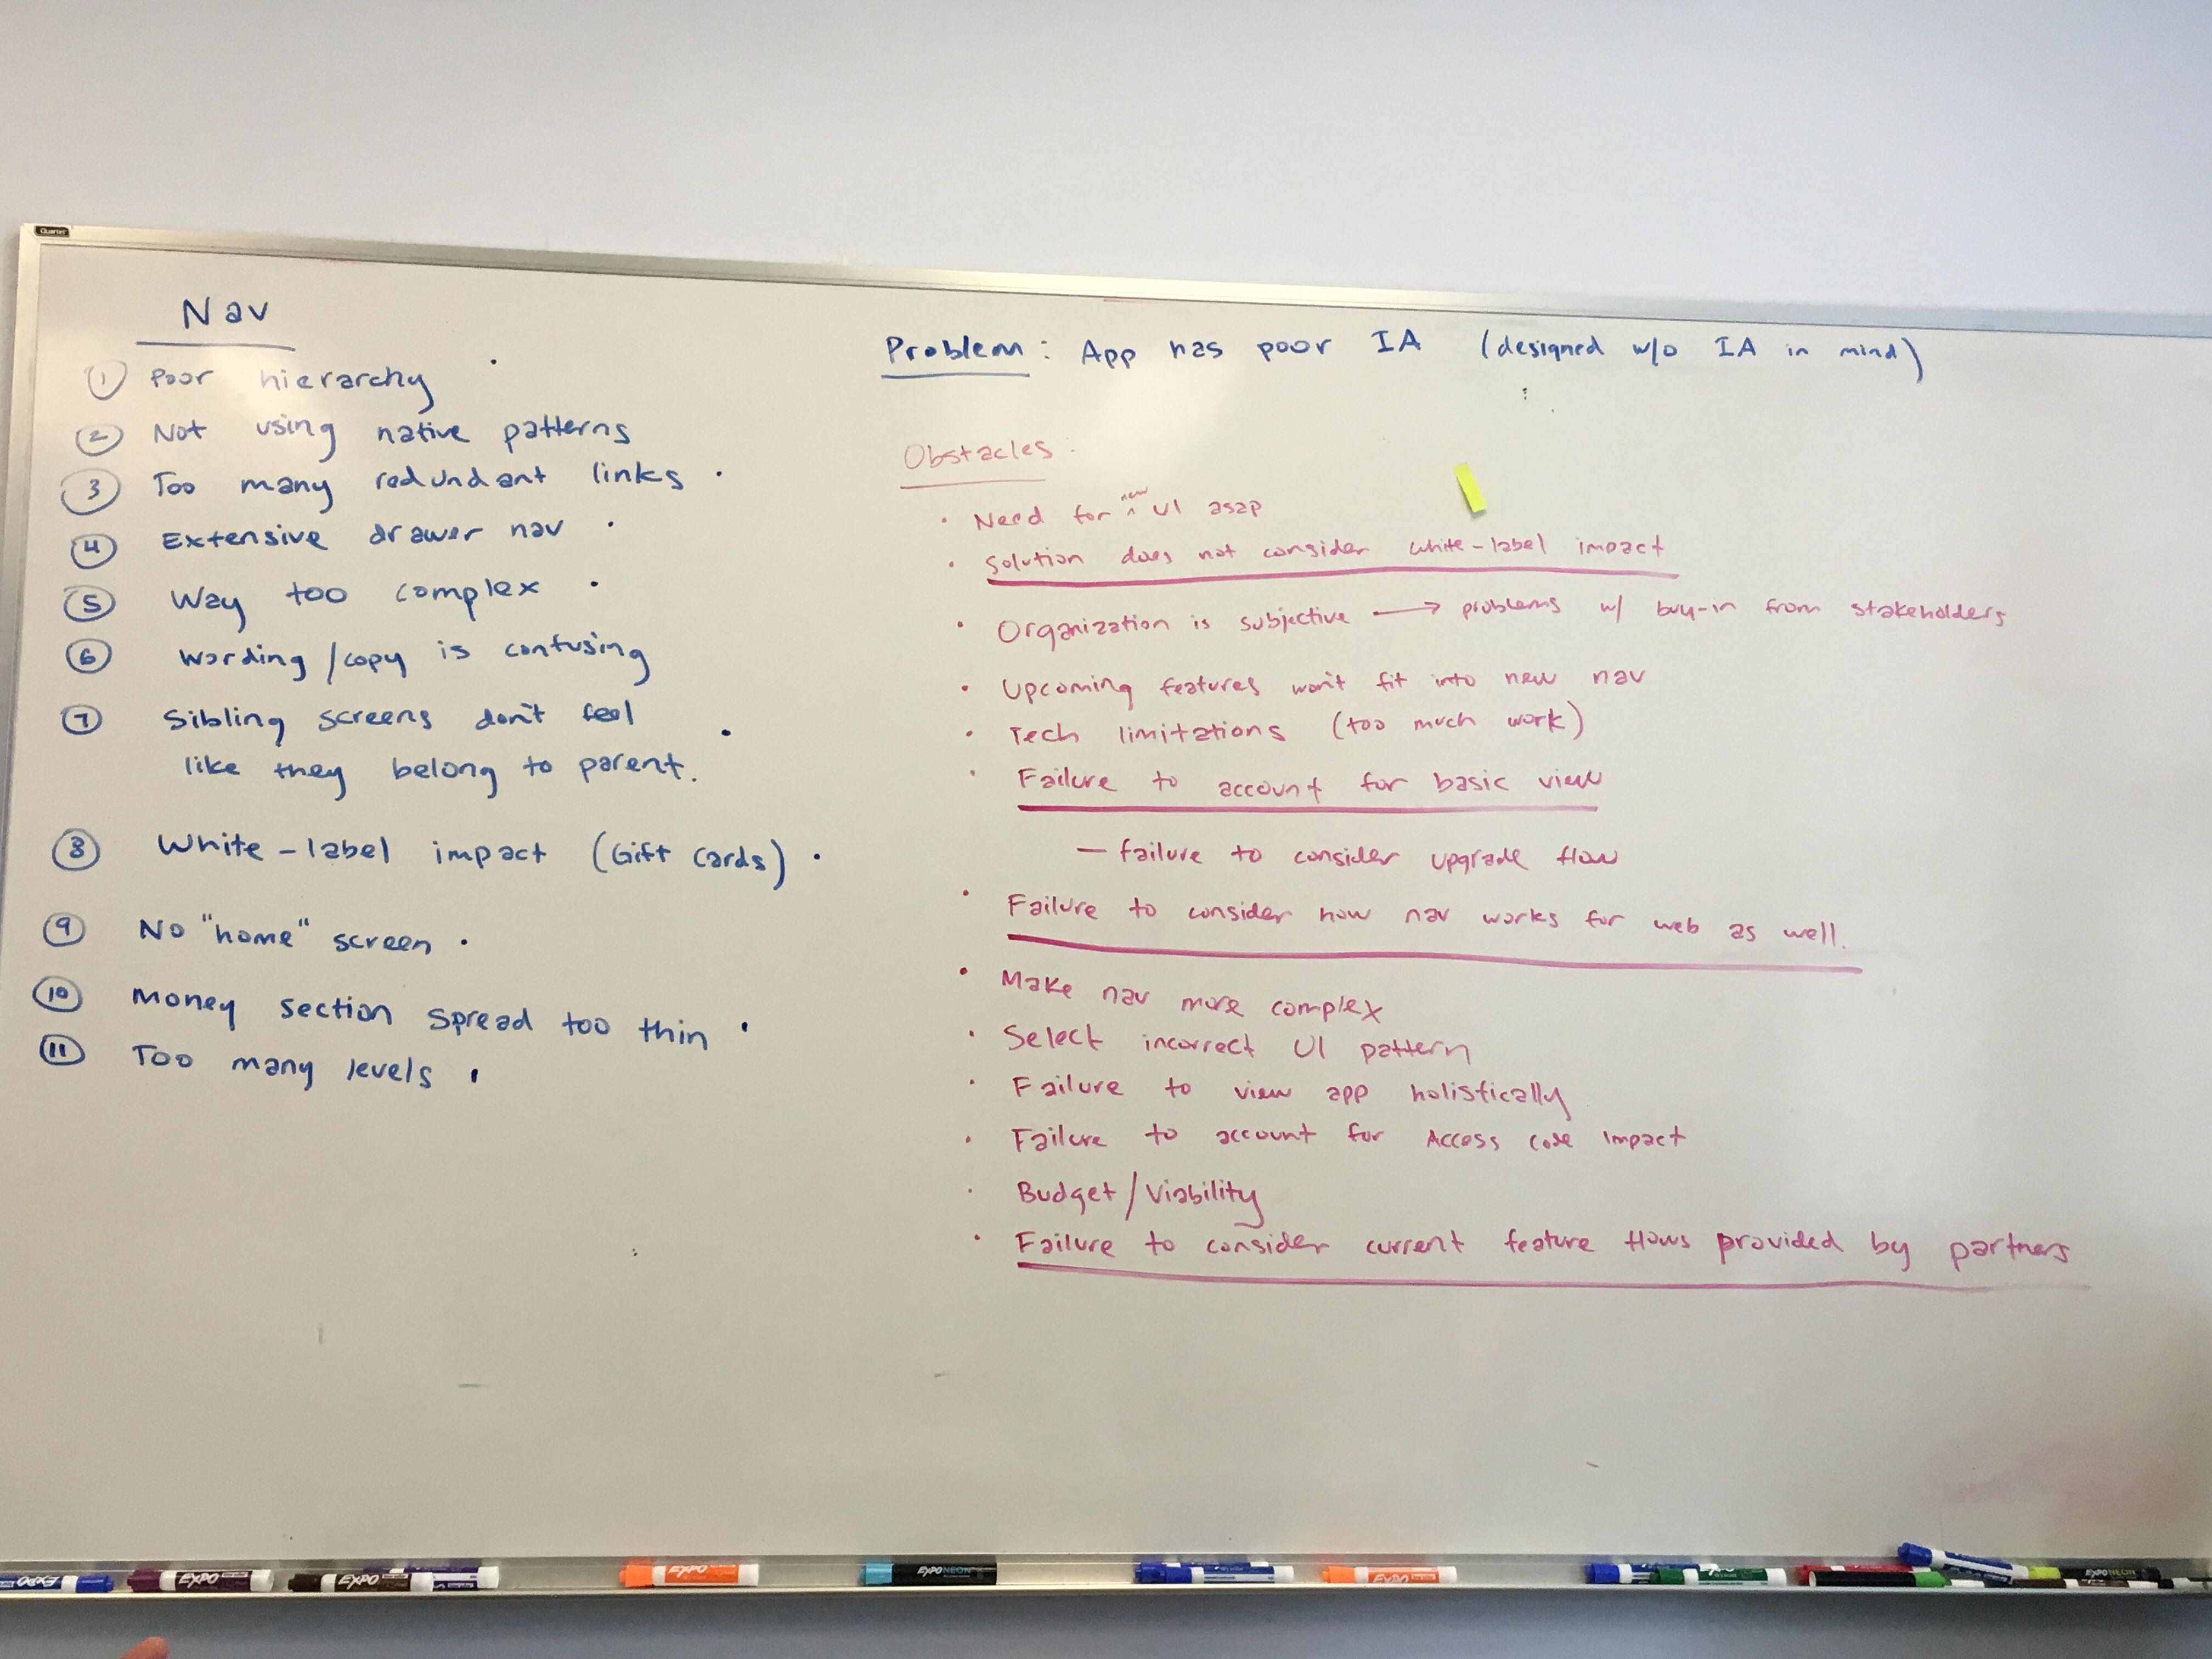 Quartet
Nav
1 Poor hierarchy
2 Not using native patterns
3 Too many redundant links
4 Extensive drawer nav
5 Way too complex
6 Wording/copy is confusing
7 Sibling screens don't feel
like they belong to parent.
8 White-label impact (Gift Cards)
9 No "home" screen
10 Money section spread too thin
11 Too many levels
Problem: App has poor IA (designed w/o IA in mind)
Obstacles:
• Need for ^new UI asap
• Solution does not consider white-label impact
• Organization is subjective → problems w/ buy-in from stakeholders
• Upcoming features won't fit into new nav
• Tech limitations (too much work)
• Failure to account for basic view
— failure to consider upgrade flow
• Failure to consider how nav works for web as well.
• Make nav more complex
• Select incorrect UI pattern
• Failure to view app holistically
• Failure to account for Access Code Impact
• Budget/Viability
• Failure to consider current feature flows provided by partners
EXPO
EXPO
EXPO
EXPO
EXPO NEON
EXPO
EXPO NEON